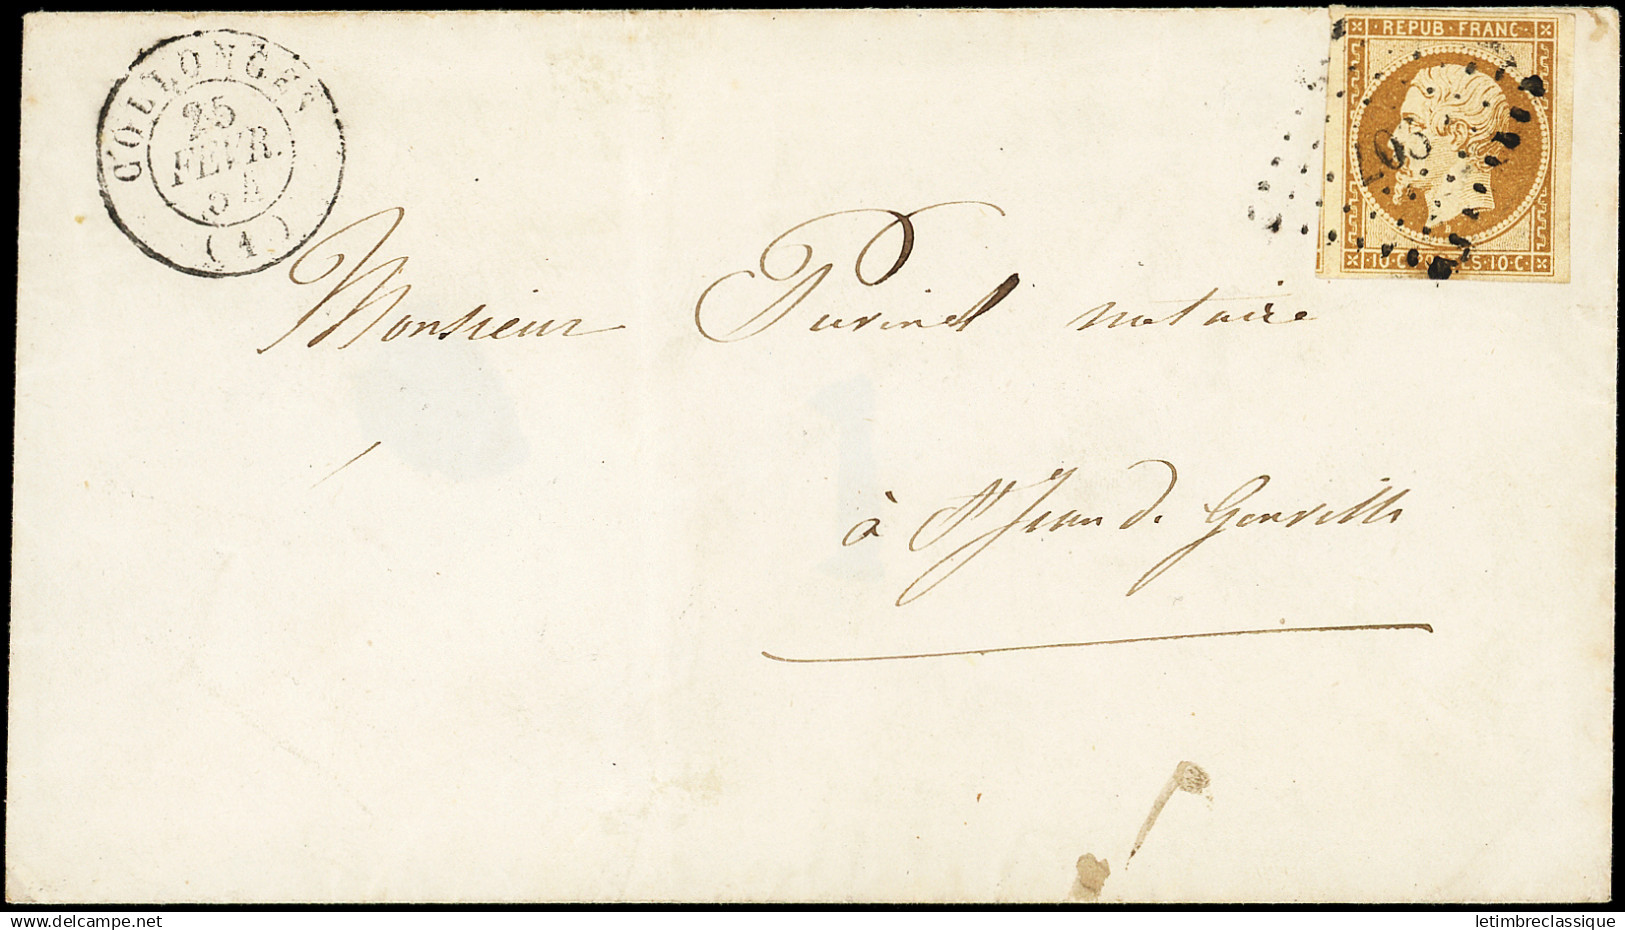 COLLONGES
25
FEVR.
54
(1)
REPUB·FRANC·
10·C· POSTES·10·C·
Monsieur Purinel notaire
à St Jean d. Gonville
delcampe.net
letimbreclassique